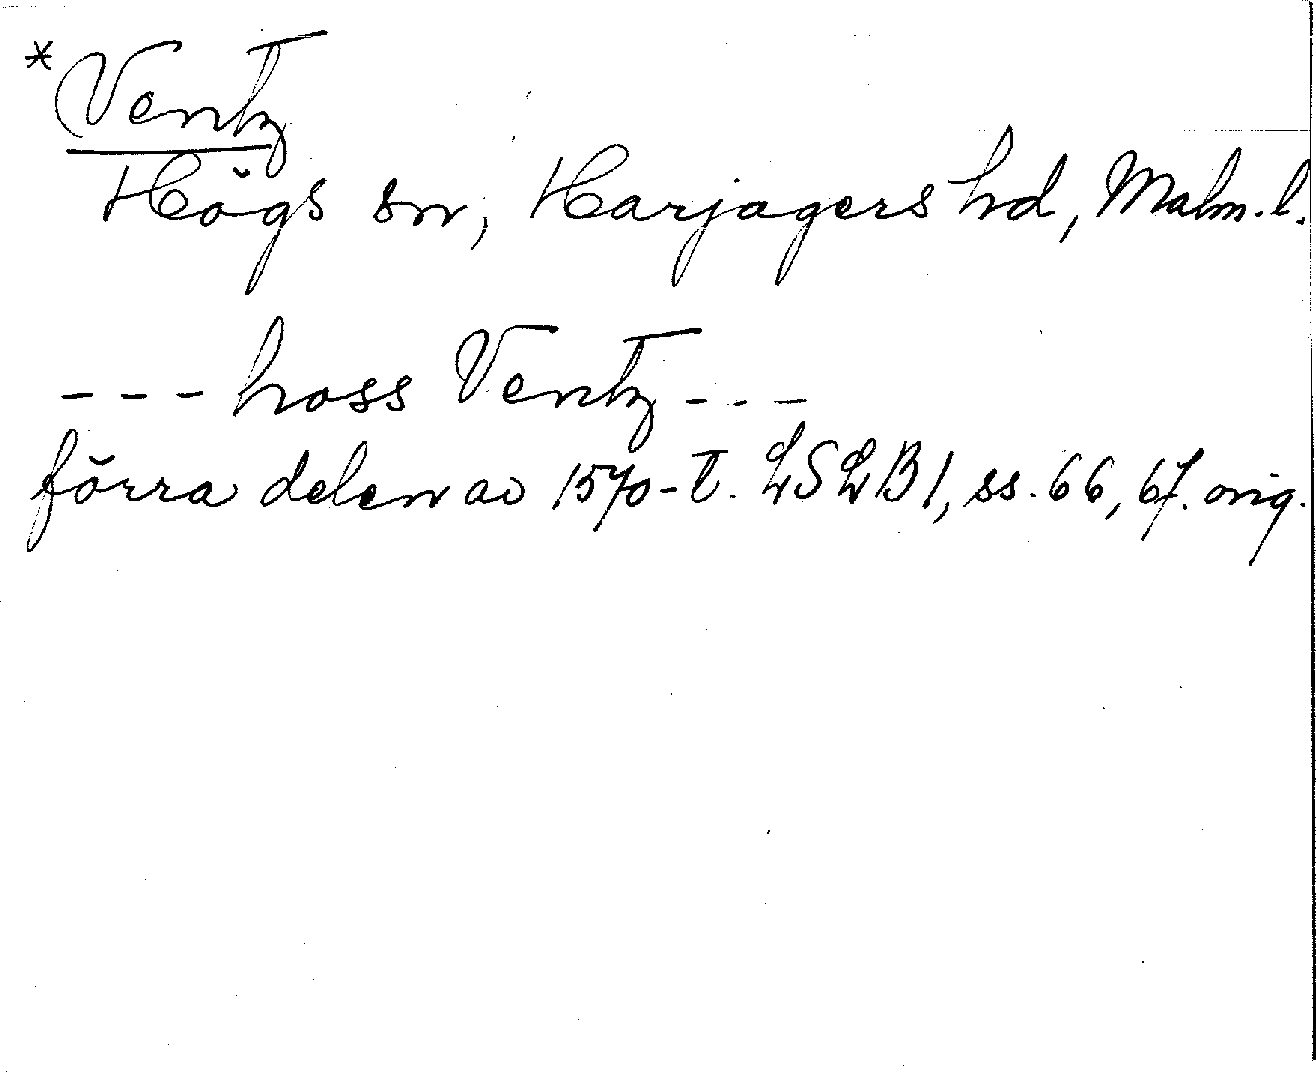 *Ventz
Högs sn, Harjagers hd, Malm.l.
--- hoss Ventz ---
förra delen av 1570-t. LSLB1, ss. 66, 67. orig.